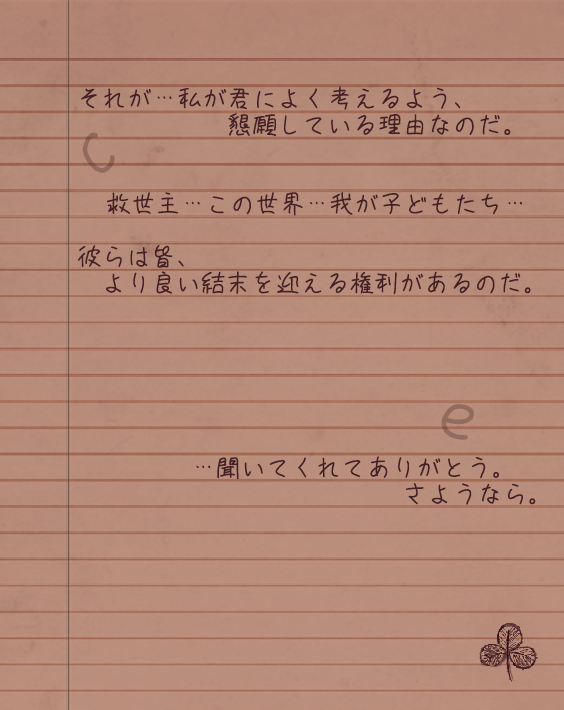 それが…私が君によく考えるよう、
懇願している理由なのだ。
C
救世主…この世界…我が子どもたち…
彼らは皆、
より良い結末を迎える権利があるのだ。
e
…聞いてくれてありがとう。
さようなら。